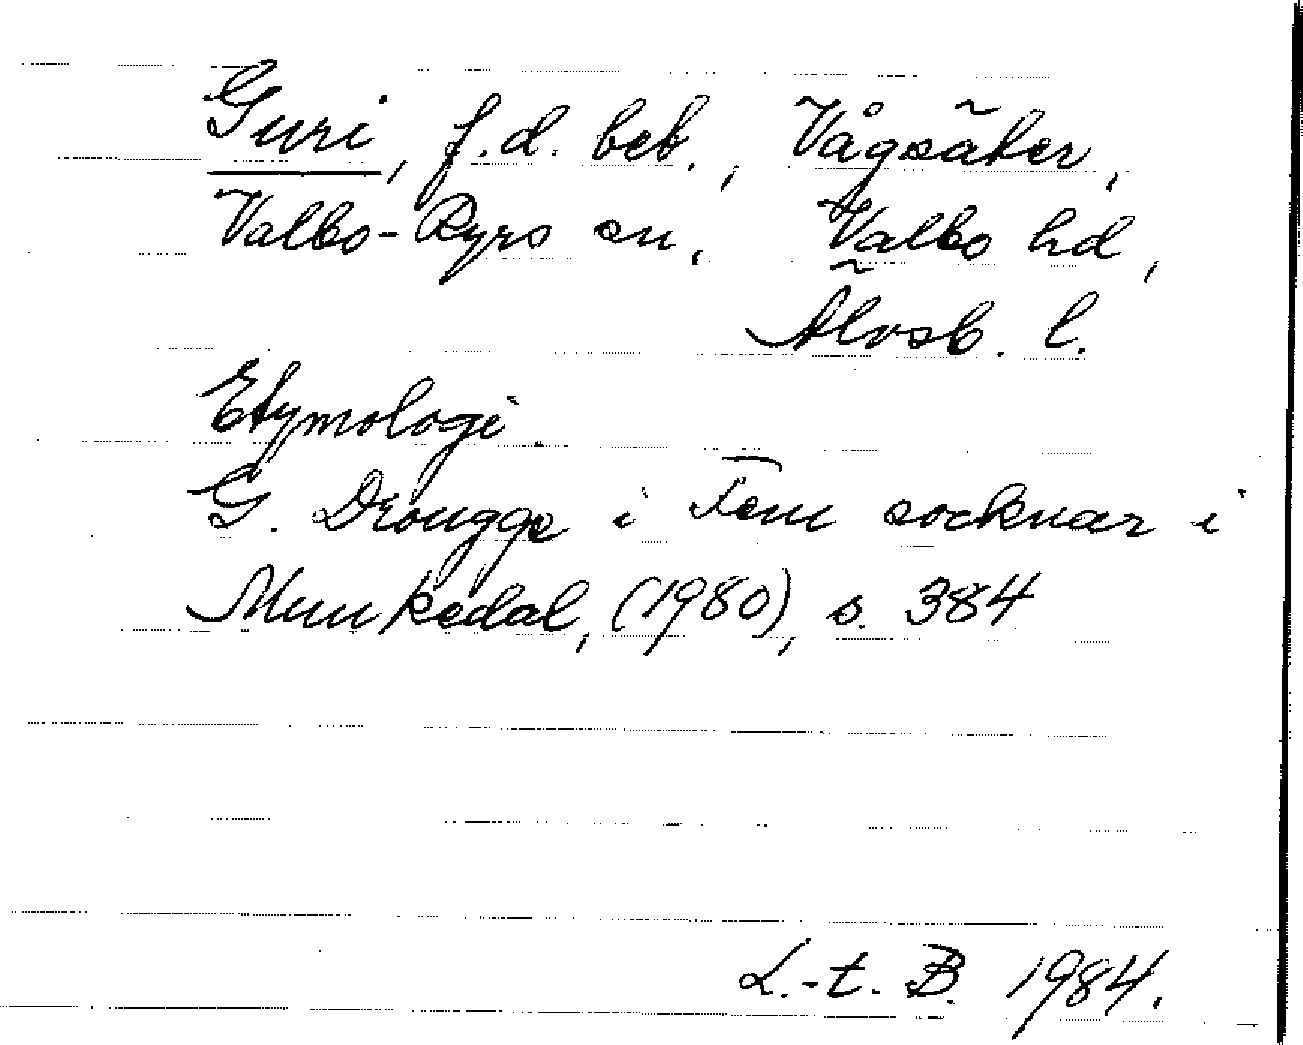 Guri, f.d. beb., Vågsäter,
Valbo-Ryrs sn, Valbo hd,
Älvsb. l.
Etymologi.
G. Drougge i Fem socknar i
Munkedal, (1980), s. 384
L.-t. B. 1984.